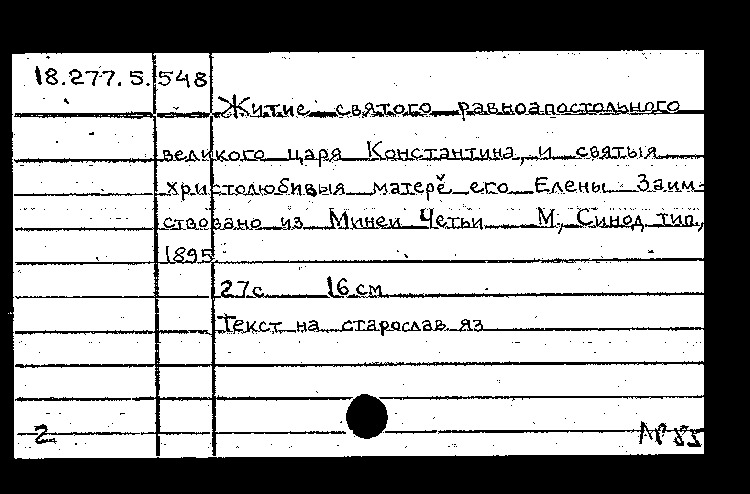 18.277.5.548
Житие святого равноапостольного
великого царя Константина, и святыя
христолюбивыя матерѣ его Елены Заим-
ствовано из Минеи Четьи М, Синод тип,
1895
27с 16 см
Текст на старослав яз
2 ЛР 85